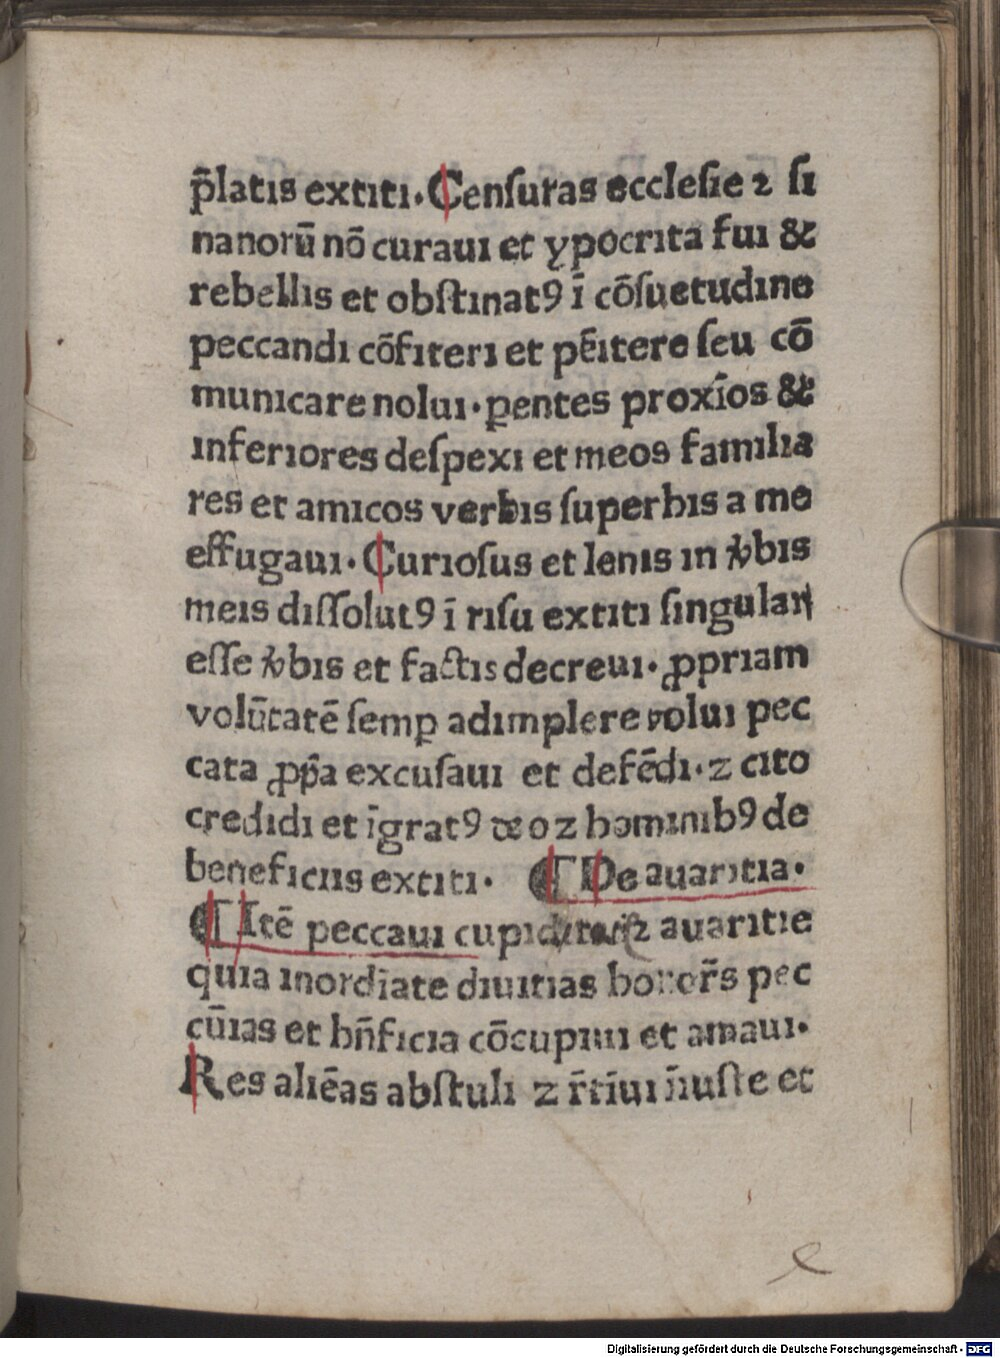 p̄latis extiti. Cenſuras eccleſie ⁊ ſi
nanorū nō curaui et ypocrita fui &
rebellis et obſtinatꝰ ī cōſuetudine
peccandi cōfiteri et pēitere ſeu cō
municare nolui. ꝑentes proxīos &
inferiores deſpexi et meos familia
res et amicos verbis ſuperbis a me
effugaui. Curioſus et lenis in v̄bis
meis diſſolutꝰ ī riſu extiti ſingulari
eſſe v̄bis et factis decreui. ꝓpriam
volūtatē ſemꝑ adimplere volui pec
cata ꝓp̄a excuſaui et defēdi. ⁊ cito
credidi et īgratꝰ deo ⁊ hominibꝰ de
beneficiis extiti. ¶ De auaritia.
¶ Itē peccaui ⁊ auaritie
quia inordīate diuitias honor̄s pec
cūias et bn̄ficia cōcupiui et amaui.
Res aliēas abſtuli ⁊ r̄tīui īiuſte et
Digitalisierung gefördert durch die Deutsche Forschungsgemeinschaft - DFG